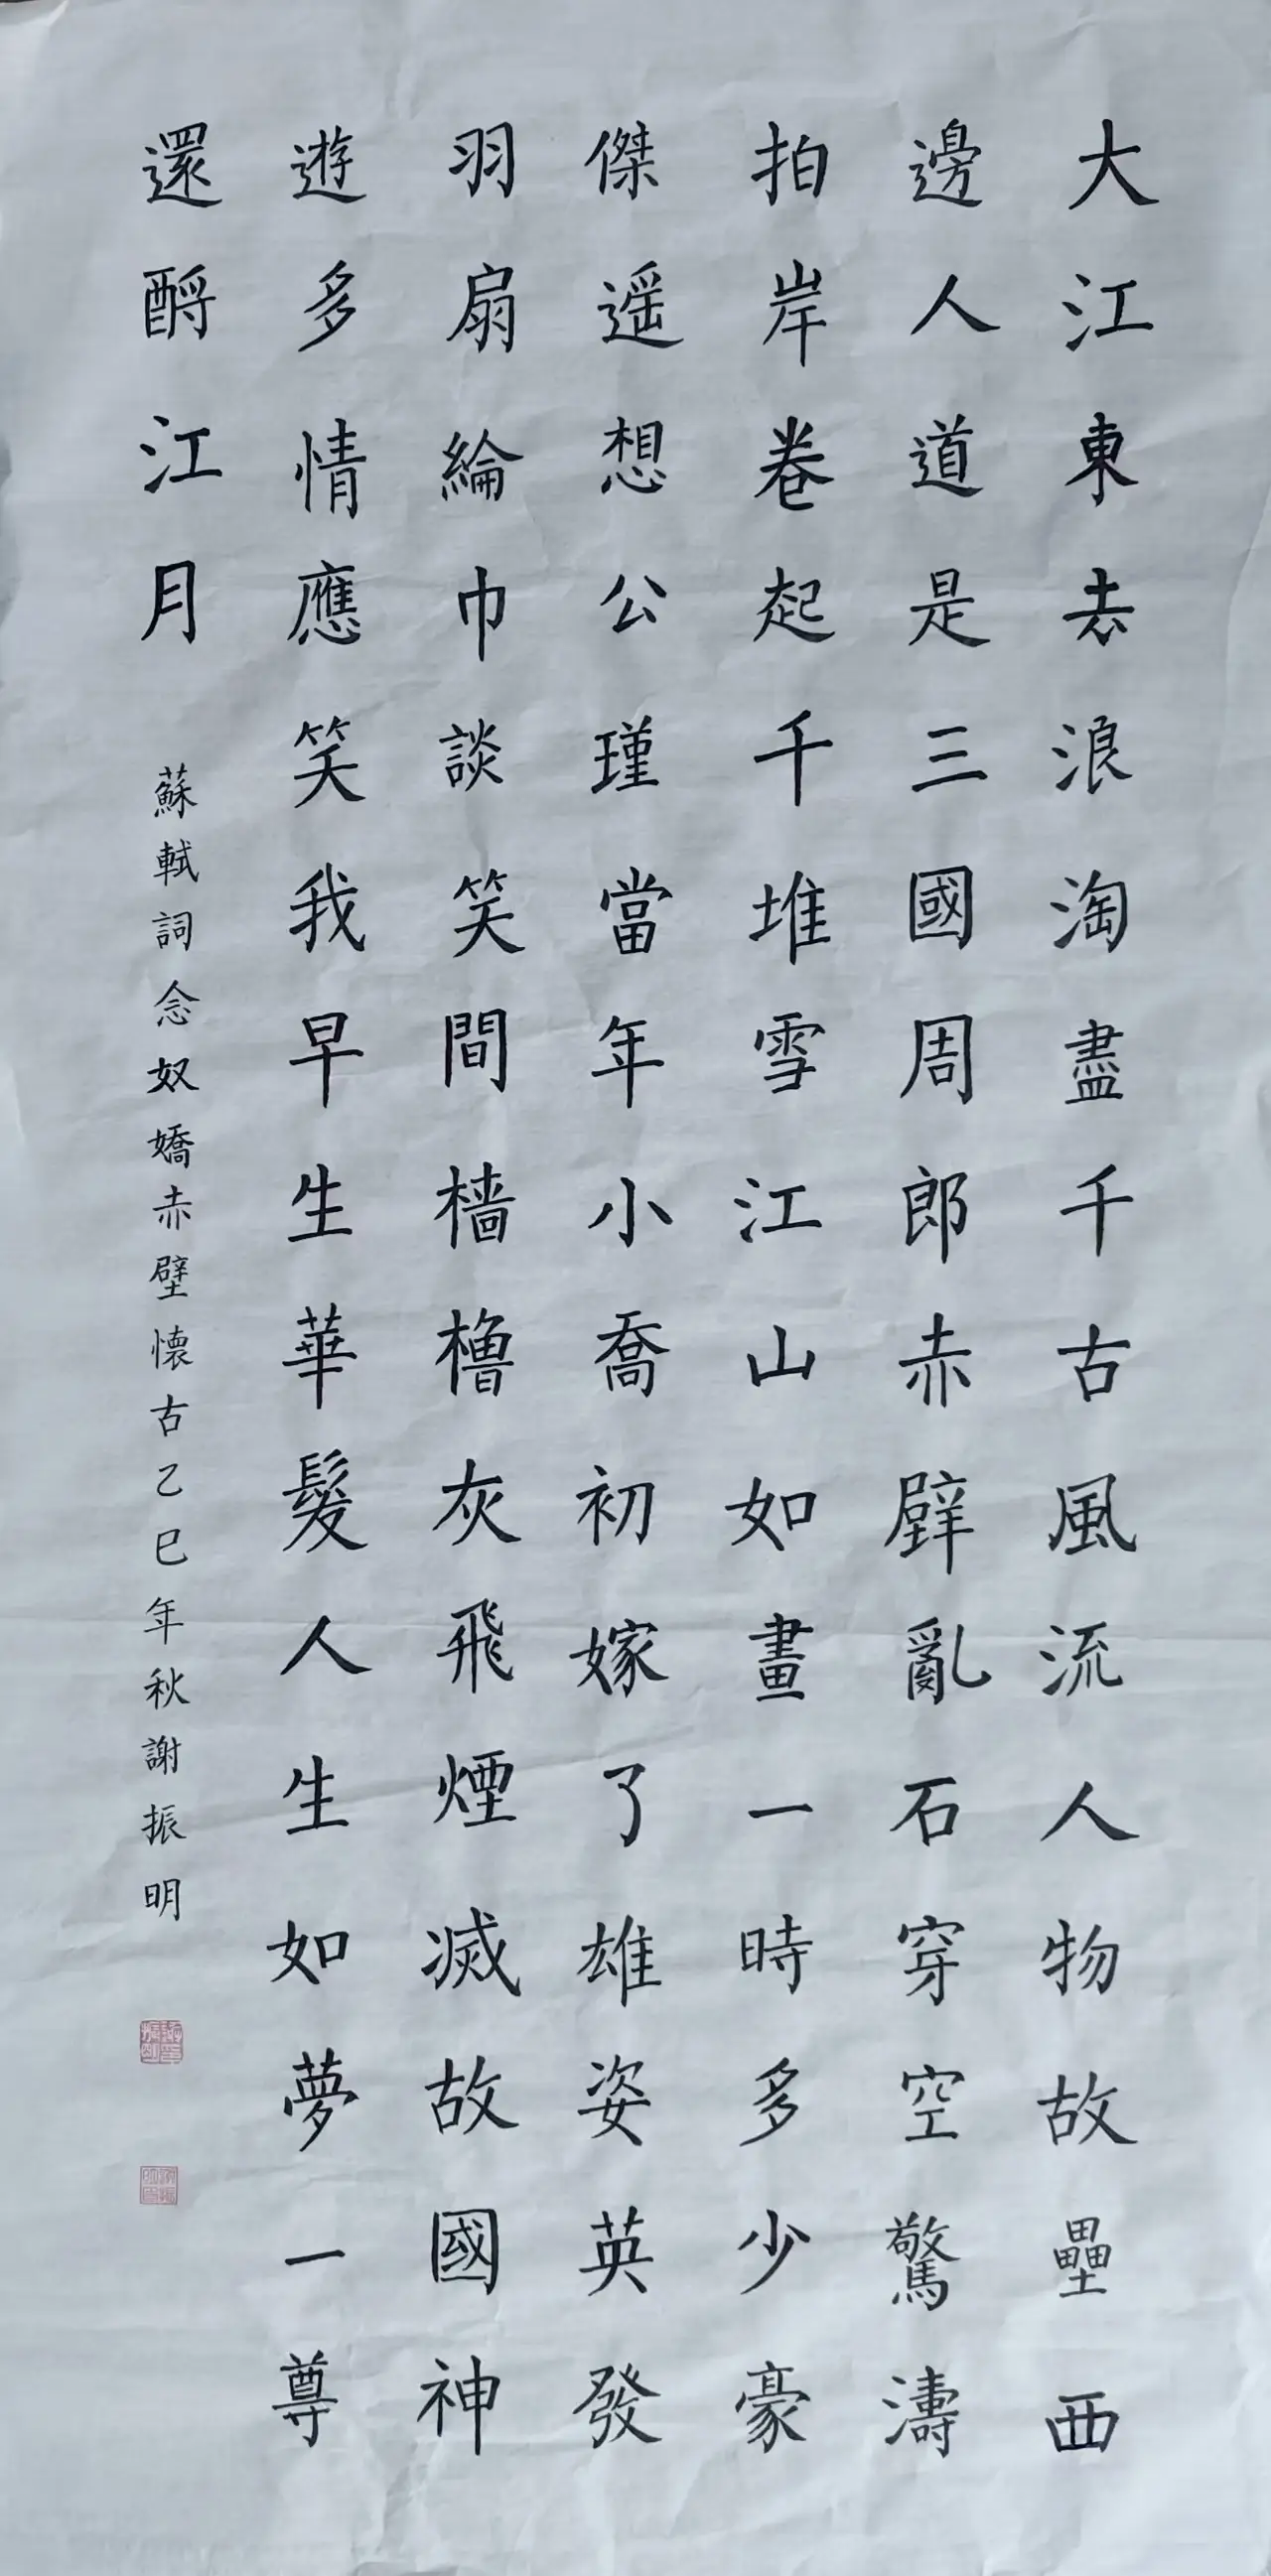 大江東去浪淘盡千古風流人物故壘西
邊人道是三國周郎赤壁亂石穿空驚濤
拍岸卷起千堆雪江山如畫一時多少豪
傑遥想公瑾當年小喬初嫁了雄姿英發
羽扇綸巾談笑間檣櫓灰飛煙滅故國神
遊多情應笑我早生華髮人生如夢一尊
還酹江月
蘇軾詞念奴嬌赤壁懷古乙巳年秋謝振明